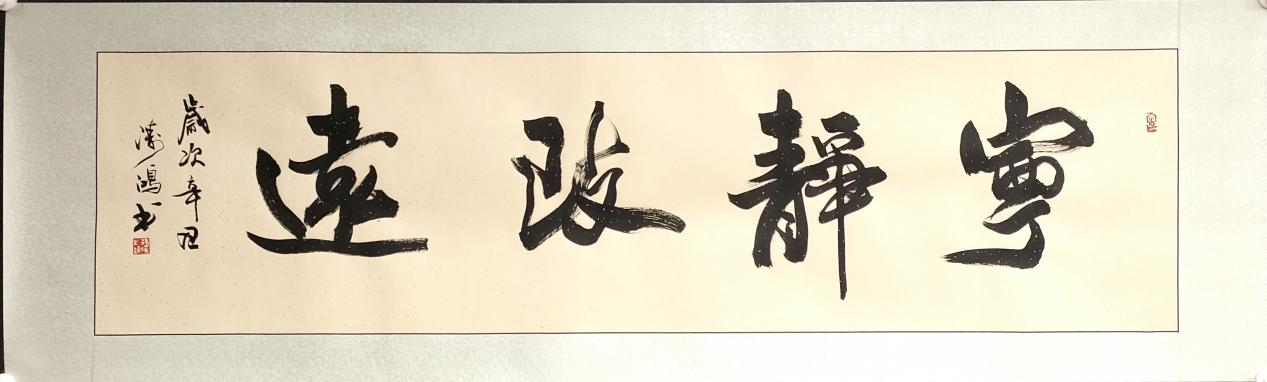 寧靜致遠
歲次辛丑
濤鴻书